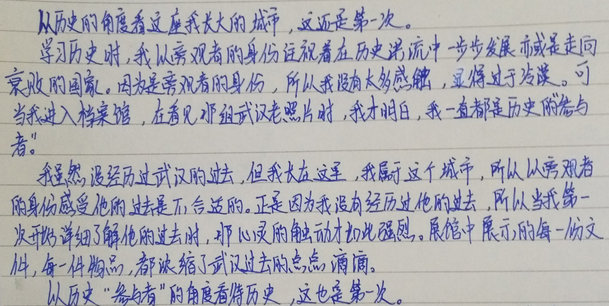 从历史的角度看这座我长大的城市，这还是第一次。
学习历史时，我以旁观者的身份注视着在历史洪流中一步步发展亦或是走向
衰败的国家。因为是旁观者的身份，所以我没有太多感触，显得过于冷漠。可
当我进入档案馆，在看见那组武汉老照片时，我才明白，我一直都是历史的“参与
者”。
我虽然没经历过武汉的过去，但我长在这里，我属于这个城市，所以以旁观者
的身份感受他的过去是不合适的。正是因为我没有经历过他的过去，所以当我第一
次开始详细了解他的过去时，那心灵的触动才如此强烈。展馆中展示的每一份文
件，每一件物品，都浓缩了武汉过去的点点滴滴。
以历史“参与者”的角度看待历史，这也是第一次。